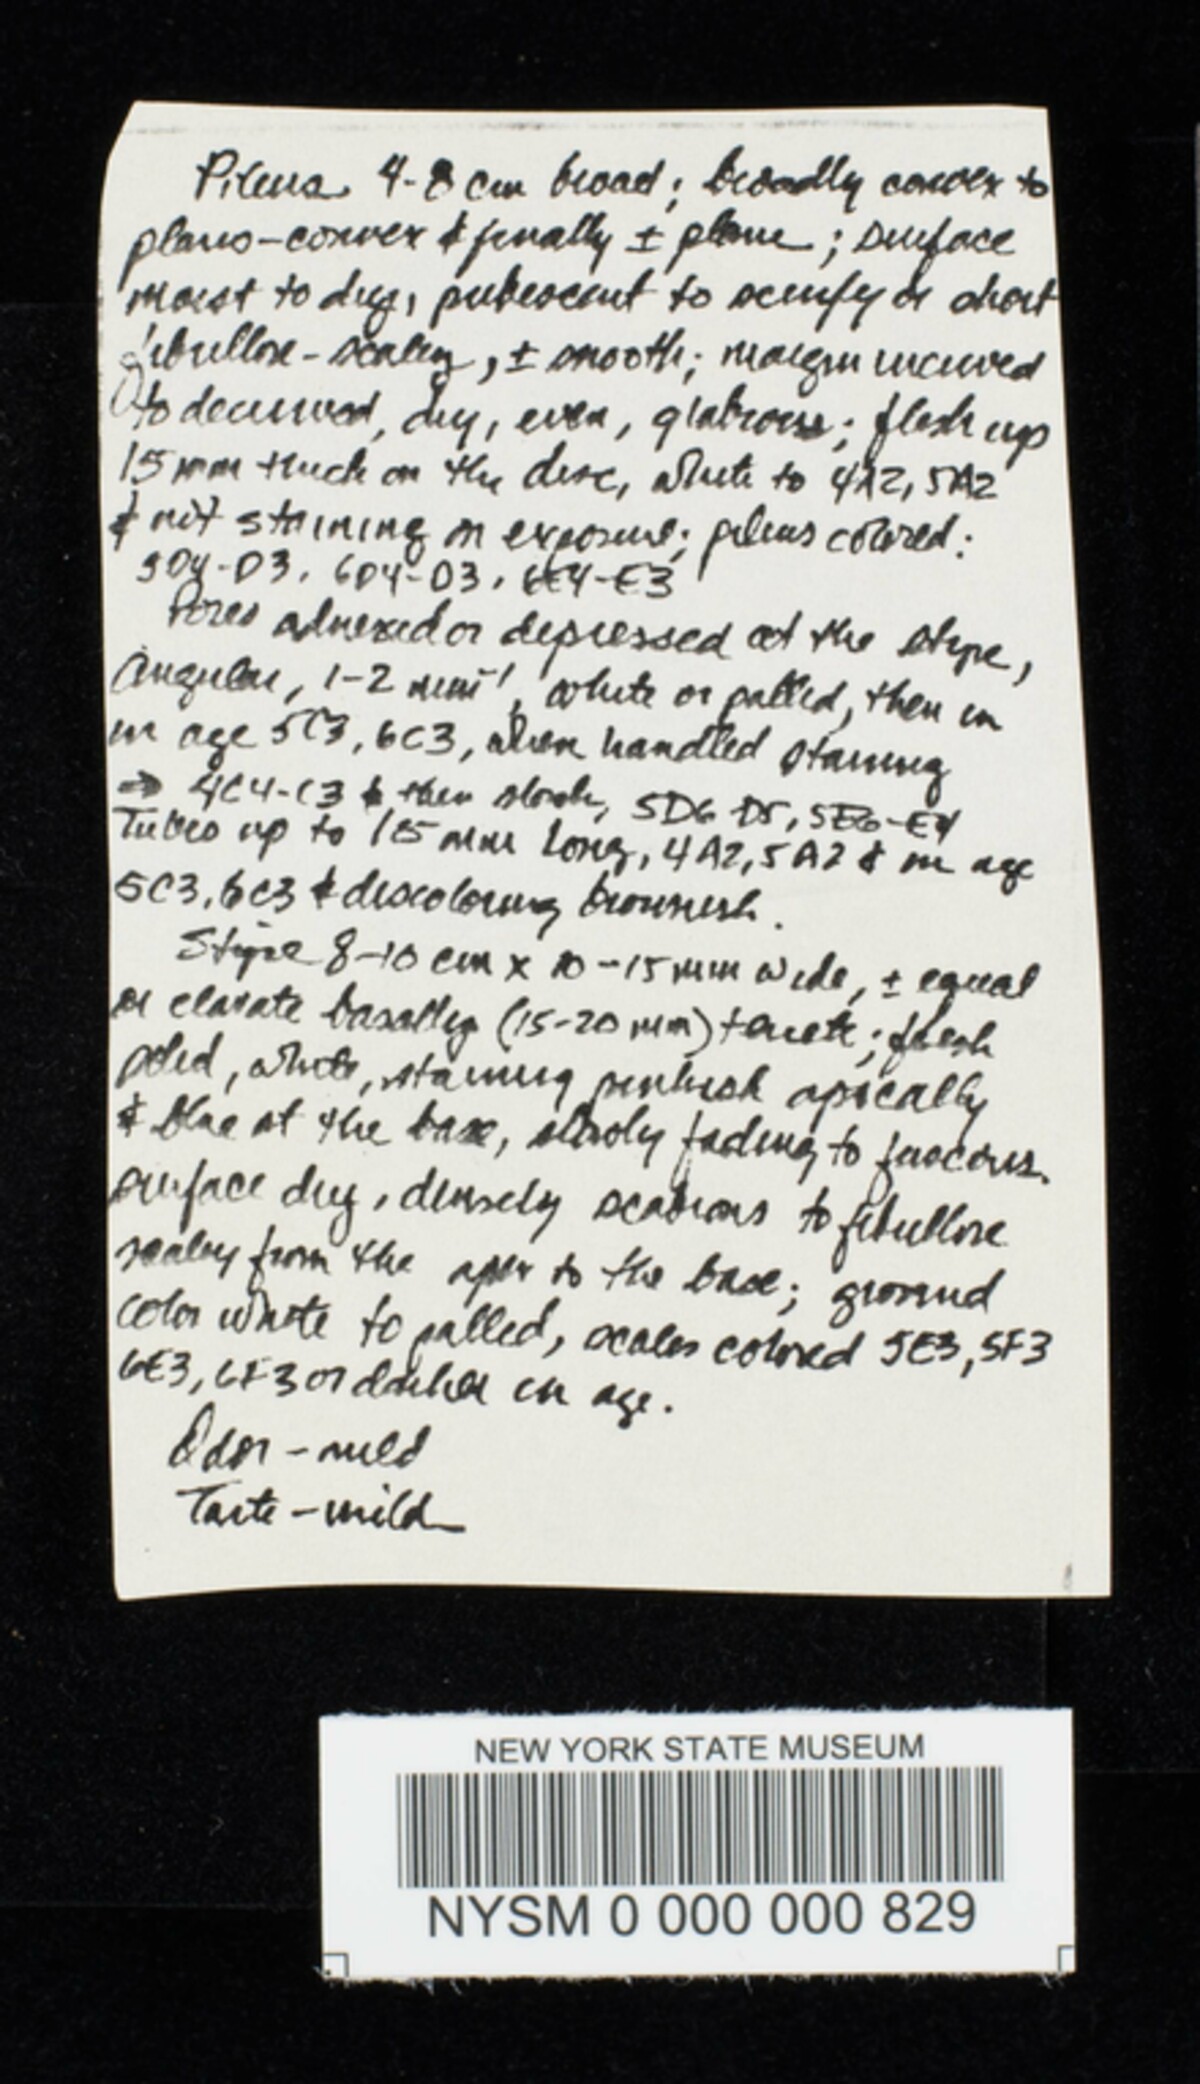 Pileus 4-8 cm broad; broadly convex to
plano-convex & finally ± plane; surface
moist to dry, pubescent to scurfy or short
fibrillose-scaley, ± smooth; margin incurved
to decurved, dry, even, glabrous; flesh up
15 mm thick on the disc, white to 4A2, 5A2
& not staining on exposure; pileus colored:
5D4-D3, 6D4-D3, 6E4-E3
Pores adnexed or depressed at the stipe,
Angular, 1-2 mm⁻¹, white or pallid, then in
in age 5C3, 6C3, when handled staining
⇒ 4C4-C3 & then slowly, 5D6-D5, 5E6-E4
Tubes up to 15 mm long, 4A2, 5A2 & in age
5C3, 6C3 & discoloring brownish.
Stipe 8-10 cm x 10-15 mm wide, ± equal
or clavate basally (15-20 mm) terete; flesh
solid, white, staining pinkish apically
& blue at the base, slowly fading to fuscous.
surface dry, densely scabrous to fibrillose
scaley from the apex to the base; ground
color white to pallid, scales colored 5E3, 5F3
6E3, 6F3 or darker in age.
Odor - mild
Taste - mild
NEW YORK STATE MUSEUM
NYSM 0 000 000 829